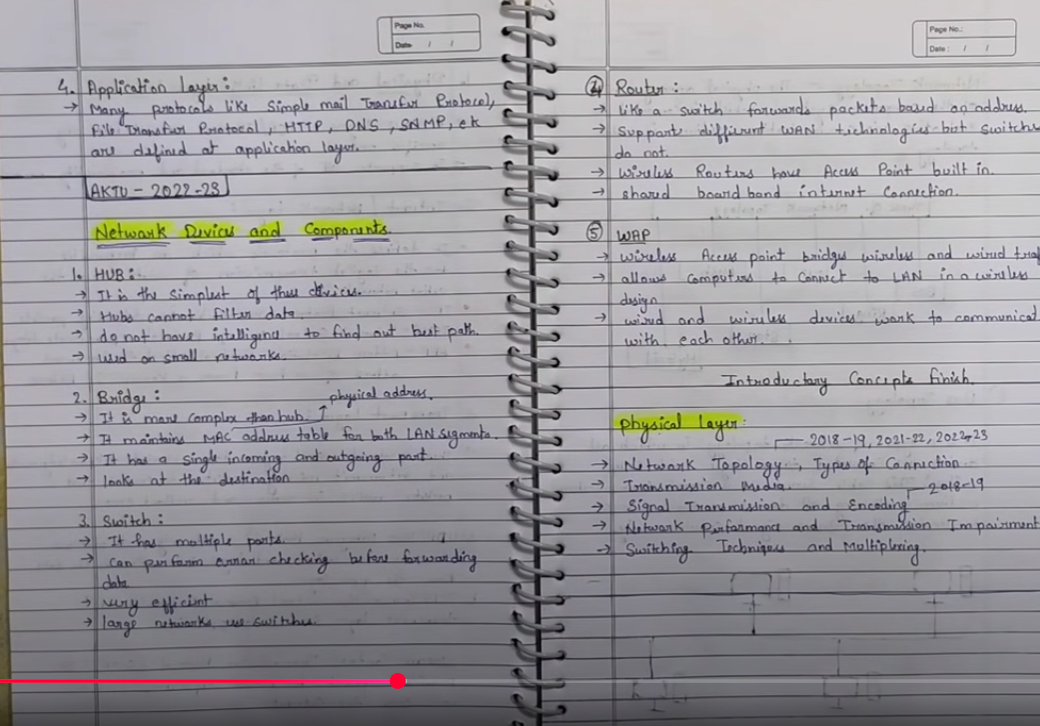 Page No.
Date / /
4. Application layer:
→ Many protocols like Simple mail Transfer Protocol,
File Transfer Protocol, HTTP, DNS, SNMP, etc
are defined at application layer.
AKTU - 2022-23
Network Devices and Components.
1. HUB:
→ It is the simplest of these devices.
→ Hubs cannot filter data.
→ do not have intelligence to find out best path.
→ used on small networks.
2. Bridge:
physical address.
→ It is more complex than hub.
→ It maintains MAC address table for both LAN segments.
→ It has a single incoming and outgoing port.
→ looks at the destination
3. Switch:
→ It has multiple ports.
→ can perform error checking before forwarding
data
→ very efficient
→ large networks use switches.
Page No.:
Date: / /
④ Router:
→ like a switch forwards packets based on address.
→ Support different WAN technologies but switches
do not.
→ wireless Routers have Access Point built in.
→ shared boardband internet Connection.
⑤ WAP
→ wireless Access point bridges wireless and wired traf
→ allows computers to connect to LAN in a wireless
design
→ wired and wireless devices work to communicat
with each other.
Introductory Concepts finish.
Physical layer:
2018-19, 2021-22, 2022-23
→ Network Topology, Types of Connection
→ Transmission Media.
2018-19
→ Signal Transmission and Encoding
→ Network Performance and Transmission Impairment
→ Switching Techniques and Multiplexing.